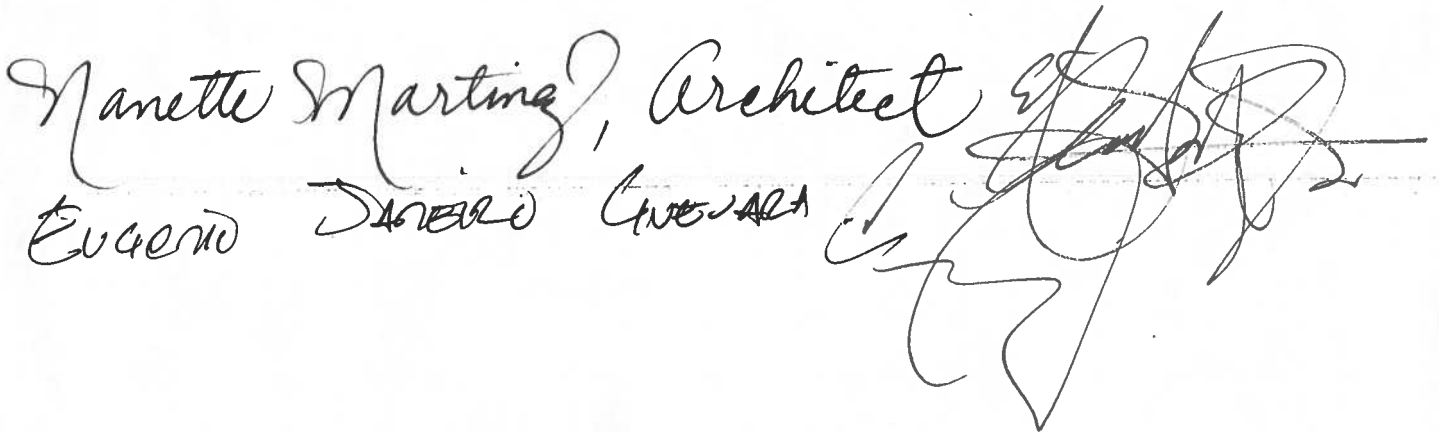 Nanette Martinez, Architect
EUGENIO JANEIRO GUEVARA